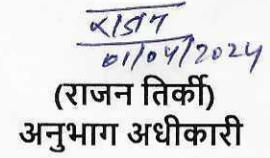 राजन
01/04/2024
(राजन तिर्की)
अनुभाग अधीकारी